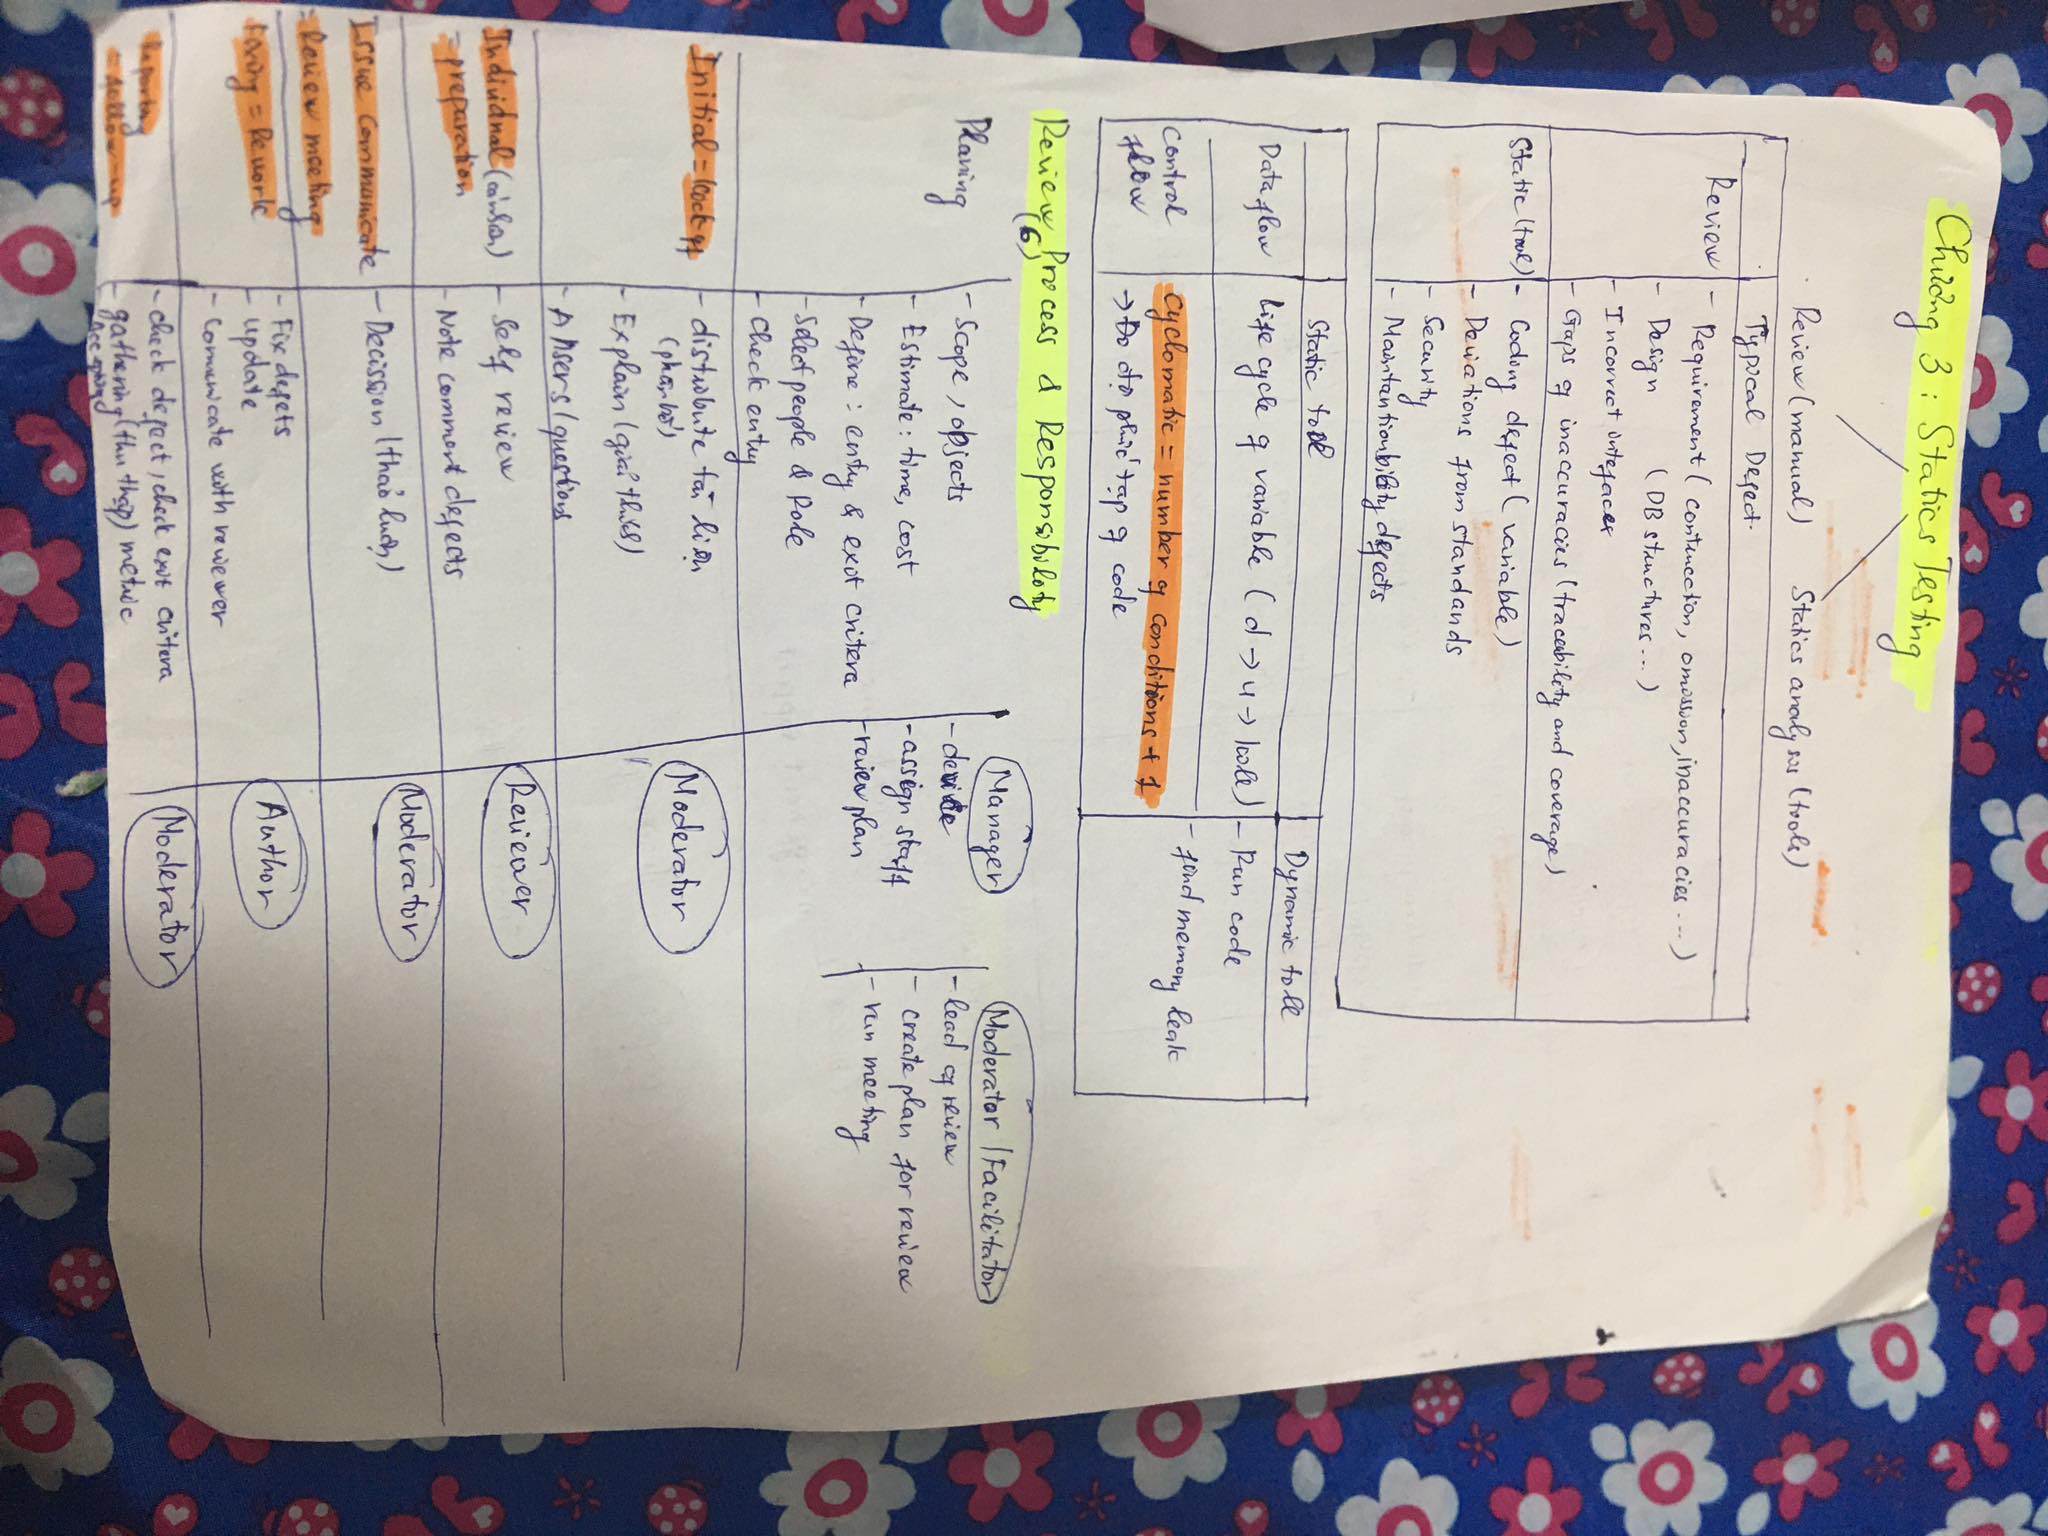 Chương 3 : Statics Testing
Review (manual) Statics analysis (tools)
Typical Defect.
Review
- Requirement ( omission, inaccuracies ... )
- Design ( DB structures ... )
- Incorrect interfaces
- Gaps of inaccuracies (traceability and coverage)
Static (tool)
- Coding defect ( variable )
- Deviations from standards
- Security
- Maintantionbility defects
Static tool
Dynamic toll
Data flow
Life cycle of variable ( d → u → kill )
- Run code
- find memory leak
Control flow
Cyclomatic = number of conditions + 1
→ Đo độ phức tạp of code
Review Process & Responsibility
(6)
Manager
Moderator / Facilitator
Planing
- Scope, objects
- Estimate : time, cost
- Define : entry & exit critera
- Select people & Role
- Check entry
-
- assign staff
- review plan
- lead of review
- create plan for review
- run meeting
Initial = kock off
- distribute tài liệu
(phân bổ)
- Explain (giải thích)
- Ansers / questions
Moderator
Individual (cá nhân)
= preparation
- Self review
- Note comment defects
Reviewer
Issue communicate
= Review meeting
- Decission (thảo luận)
Moderator
Fixing = Rework
- Fix defets
- update
- Comunicate with reviewer
Author
Reporting
= follow-up
- check defect, check exit critera
- gathering (thu thập) metric
Moderator